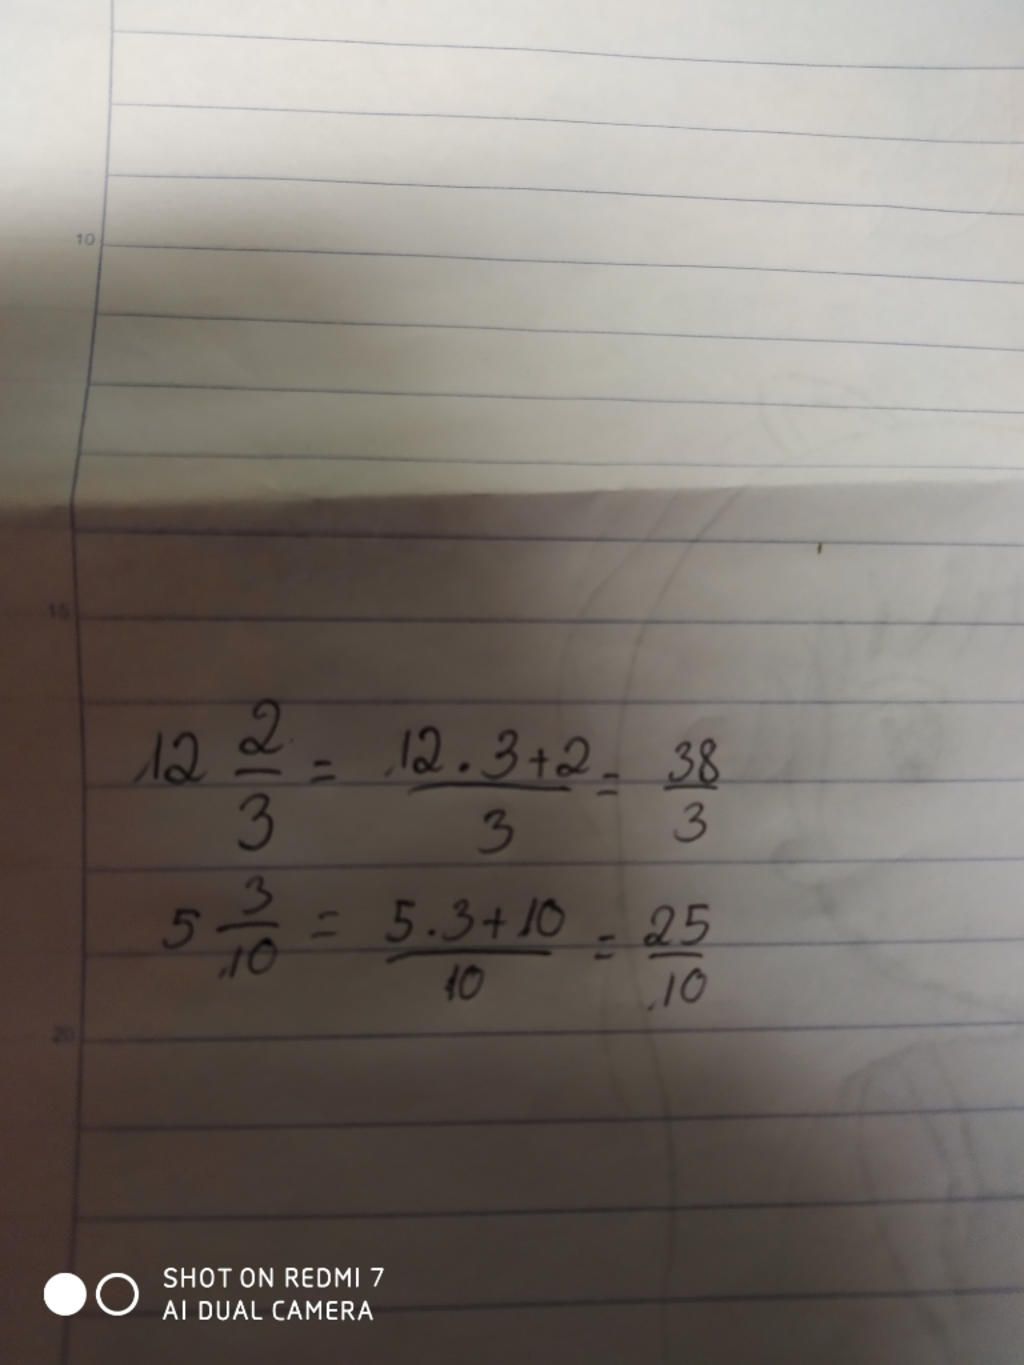 10
15
12 2/3 = 12.3+2/3 = 38/3
5 3/10 = 5.3+10/10 = 25/10
20
SHOT ON REDMI 7
AI DUAL CAMERA